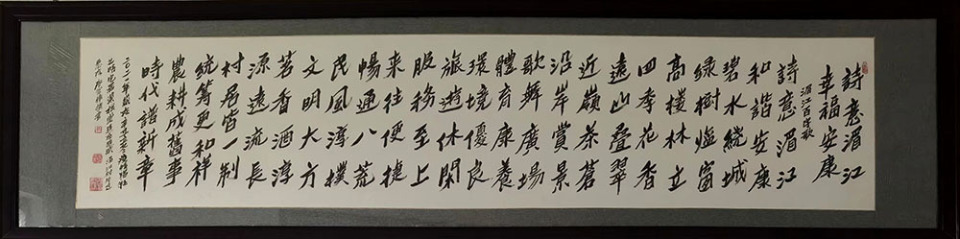 詩意湄江
幸福安康
湄江百字歌
詩意湄江
和諧安康
碧水繞城
綠樹盈窗
高樓林立
四季花香
遠山疊翠
近嶺茶蒼
沿岸賞景
歌舞廣場
體育康養
環境優良
旅遊休閑
服務至上
来往便捷
暢通八荒
民風淳樸
文明大方
茗香酒淳
源遠流長
村居皆一制
統筹更和祥
農耕成舊事
時代譜新章
二〇二一年